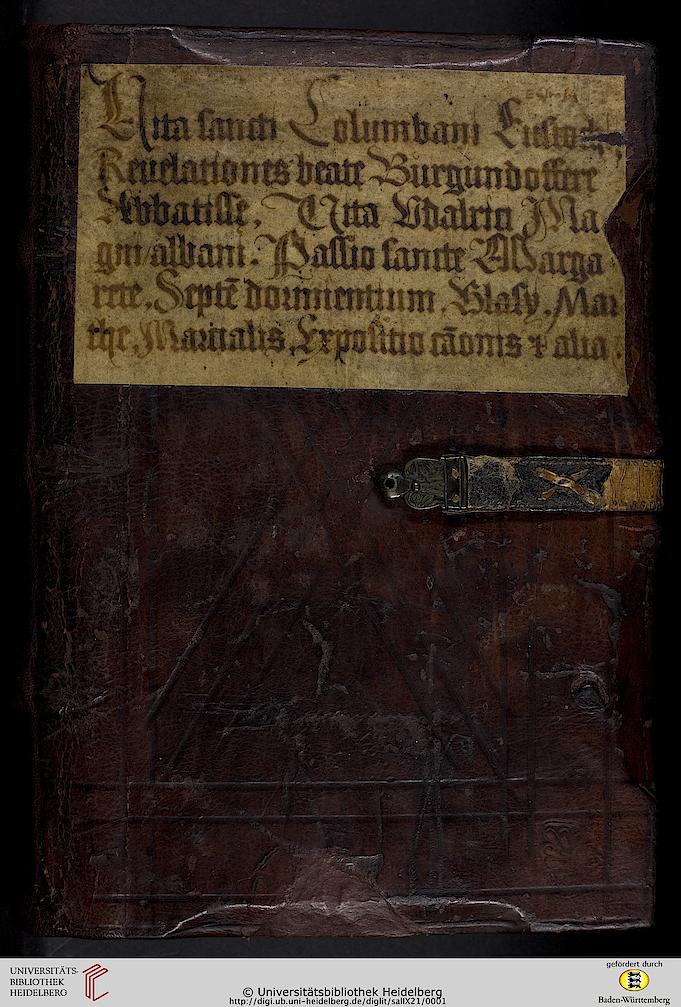 Vita sancti Columbani Eustasii,
Reuelationes beate Burgundoffere
Abbatisse, Vita Vdalrici Ma
gni albani. Passio sancte Marga
rete. Septē dormientium, Blasy, Mar
the, Martialis, Expositio cāonis ⁊ alia.
UNIVERSITÄTS-
BIBLIOTHEK
HEIDELBERG
© Universitätsbibliothek Heidelberg
http://digi.ub.uni-heidelberg.de/diglit/salIX21/0001
gefördert durch
Baden-Württemberg